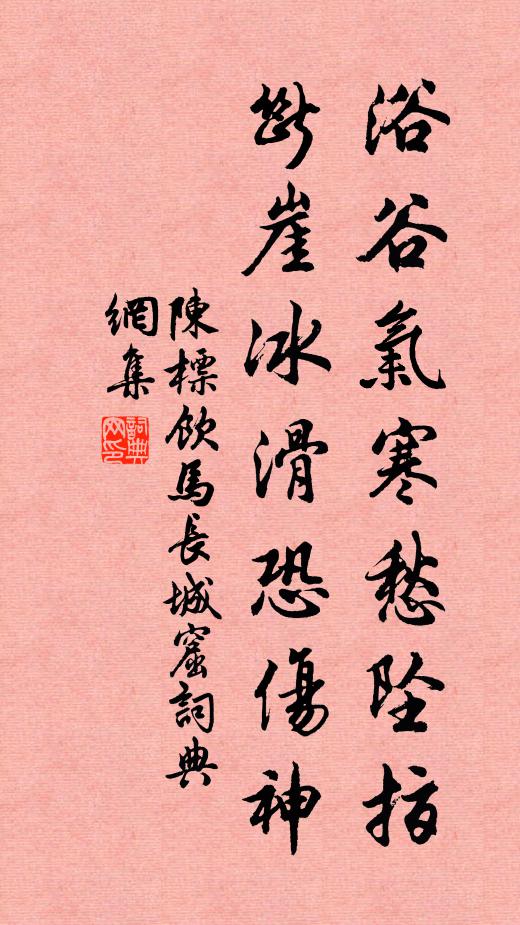 浴谷氣寒愁墜指
斷崖冰滑恐傷神
陳標飲馬長城窟詞典
網集
詞典
网印